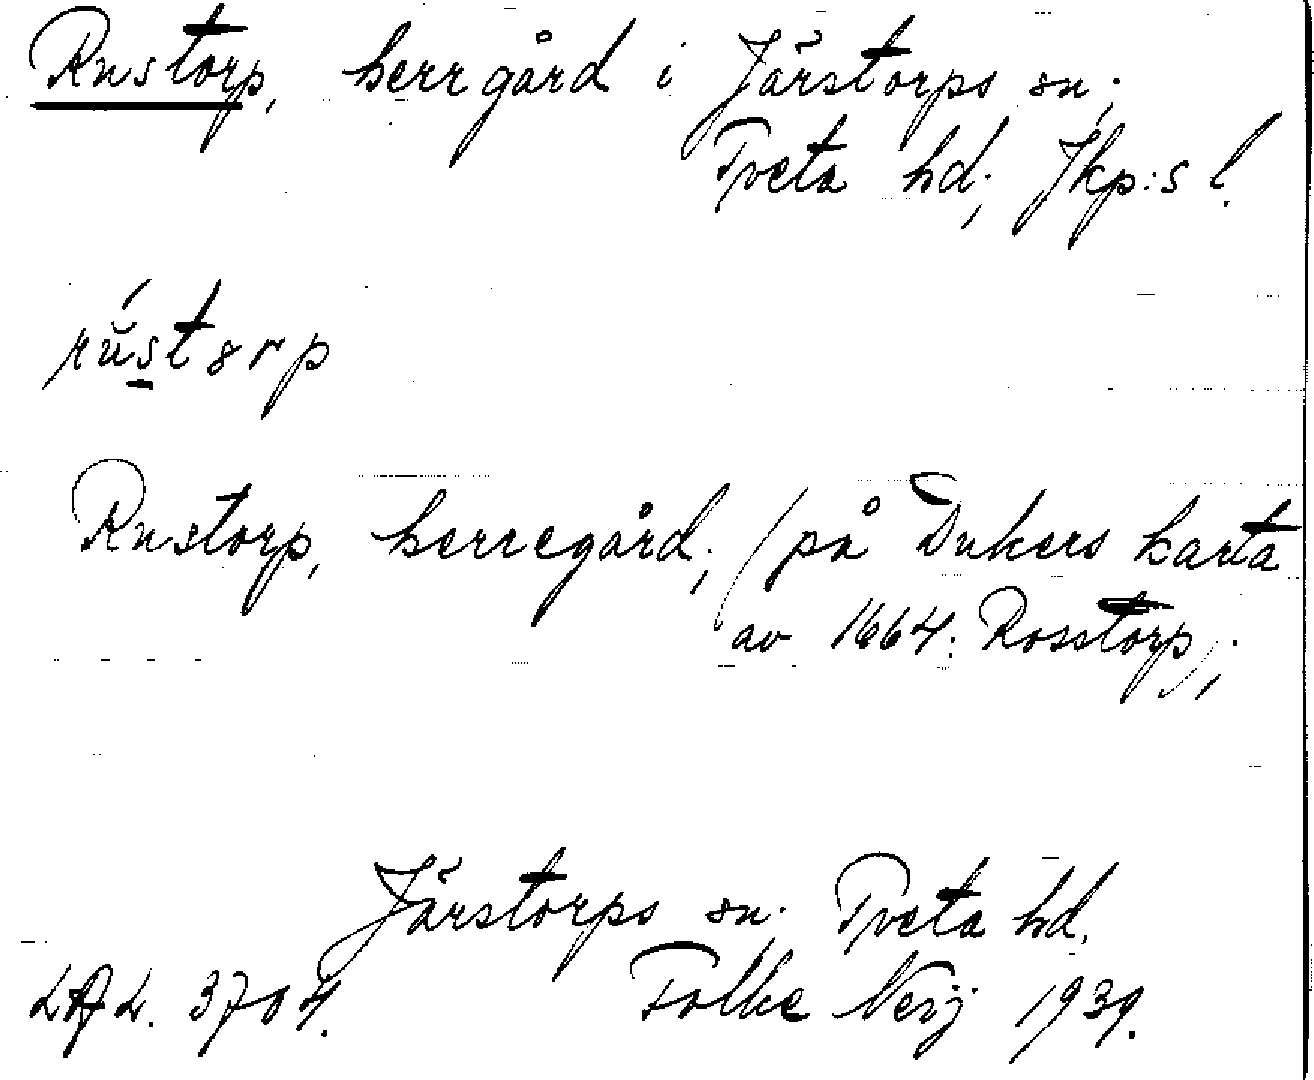 Rustorp, herrgård i Järstorps sn;
Tveta hd; Jkp:s l.
Rustorp, herregård; (på Dukers karta
av 1664: Rosstorp);
Järstorps sn. Tveta hd.
3704. Folke 1939.